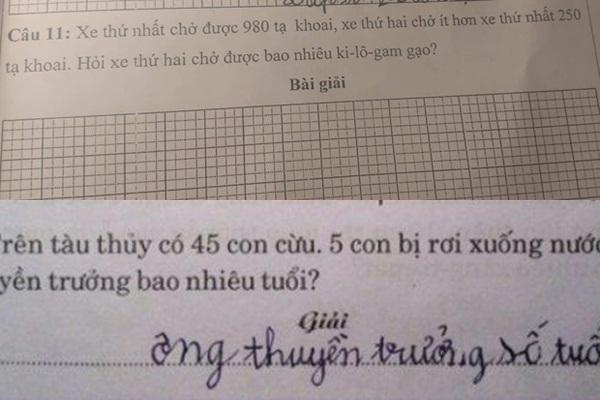 Câu 11: Xe thứ nhất chở được 980 tạ khoai, xe thứ hai chở ít hơn xe thứ nhất 250
tạ khoai. Hỏi xe thứ hai chở được bao nhiêu ki-lô-gam gạo?
Bài giải
rên tàu thủy có 45 con cừu. 5 con bị rơi xuống nướ
yền trưởng bao nhiêu tuổi?
Giải
ông thuyền trưởng số tuổ